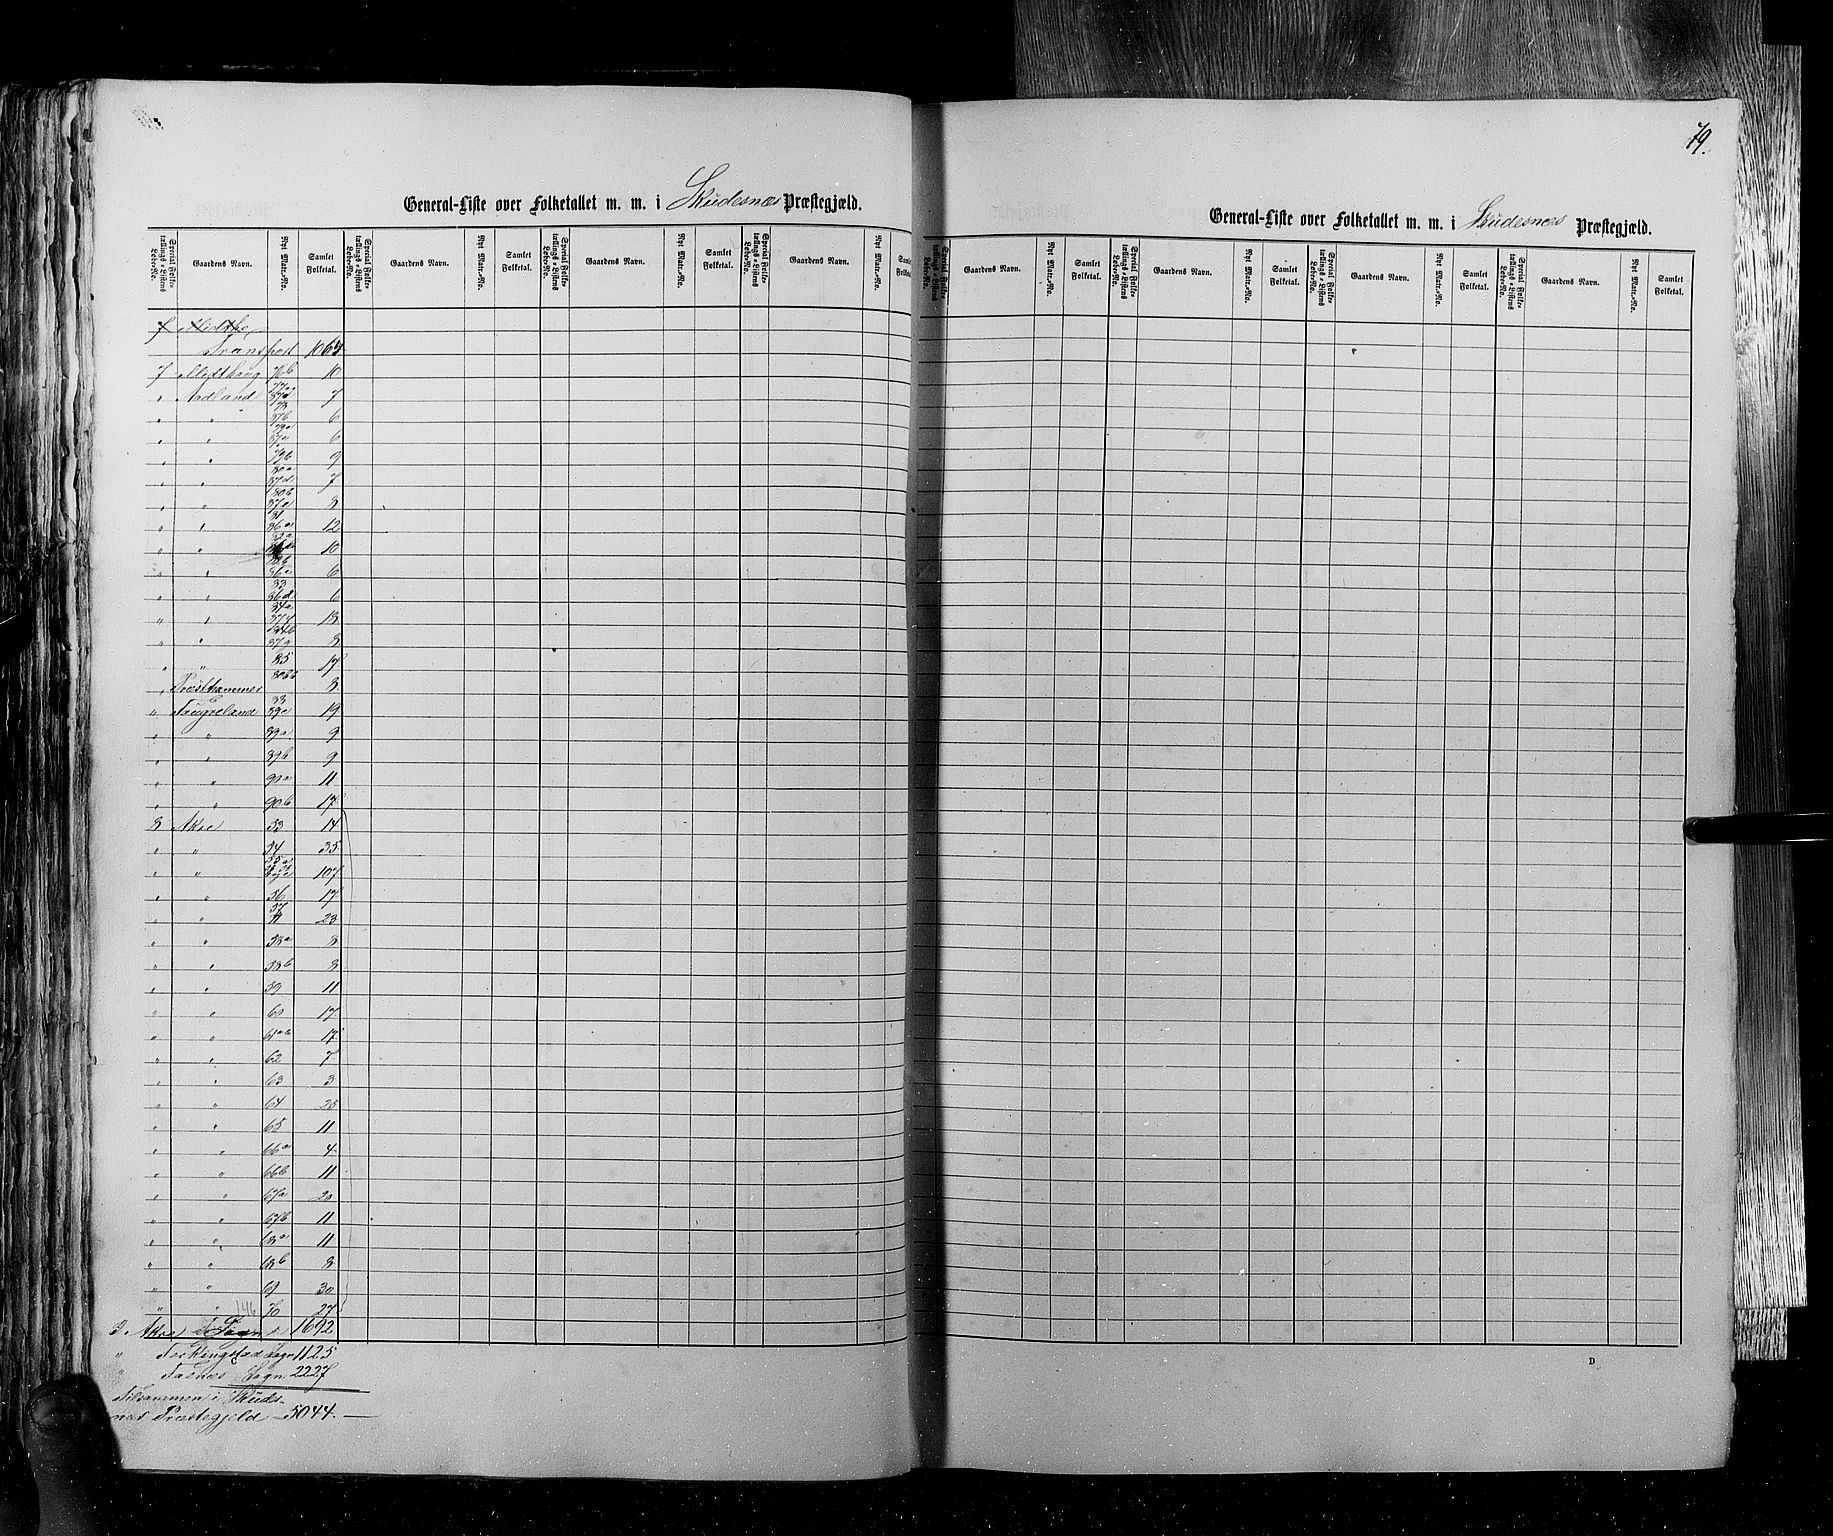 79.
General-Liste over Folketallet m. m. i Skudesnæs Præstegjæld.
Special Folketællings-Listens Løbe-No. Gaardens Navn. Nyt Matr.-No. Samlet Folketal. Special Folketællings-Listens Løbe-No. Gaardens Navn. Nyt Matr.-No. Samlet Folketal. Special Folketællings-Listens Løbe-No. Gaardens Navn. Nyt Matr.-No. Samlet Folketal. Special Folketællings-Listens Løbe-No. Gaardens Navn. Nyt Matr.-No. Samlet Folketal.
Transport 1064
7 Midthaug 76b 10
" Aadland 7
" " 6
" " 6
" " 79b 9
" " 7
" " 8
" " 12
" " 10
" " 6
" " 6
" " 13
" " 8
" " 85 17
" 8
" 19
" " 89a 9
" " 89b 9
" " 90a 11
" " 90b 17
8 Akre 53 14
" " 54 35
" " 107
" " 56 17
" " 57 23
" " 58a 8
" " 58b 8
" " 59 11
" " 60 17
" " 61ab 17
" " 62 7
" " 63 3
" " 64 25
" " 65 11
" " 66a 4
" " 66b 11
" " 67a 20
" " 67b 11
" " 68a 11
" " 68b 8
" " 69 30
" " 70 27
146
Akre Sogn 1692
" Ferkingstad Sogn 1125
" Falnæs Sogn 2227
Tilsammen i Skudes-
næs Præstegjeld 5044.
General-Liste over Folketallet m. m. i Skudesnæs Præstegjæld.
Special Folketællings-Listens Løbe-No. Gaardens Navn. Nyt Matr.-No. Samlet Folketal. Special Folketællings-Listens Løbe-No. Gaardens Navn. Nyt Matr.-No. Samlet Folketal. Special Folketællings-Listens Løbe-No. Gaardens Navn. Nyt Matr.-No. Samlet Folketal. Special Folketællings-Listens Løbe-No. Gaardens Navn. Nyt Matr.-No. Samlet Folketal.
D